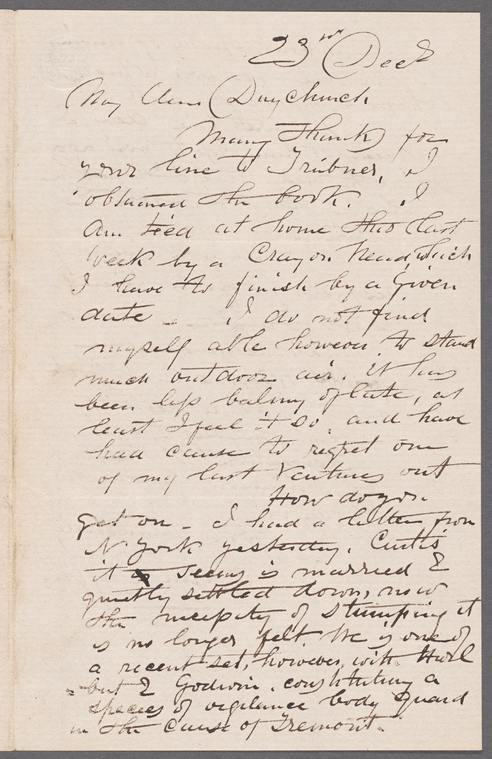 23rd Decr
My dear Duyckinck
Many thanks for
your line to Trübner, I
obtained the book. I
am tied at home this last
week by a Crayon head which
I have to finish by a given
date — I do not find
myself able however to stand
much outdoor air. it has
been less balmy of late, at
least I feel it so, and have
had cause to regret one
of my last ventures out
How do you
get on — I had a letter from
N. York yesterday. Curtis
it seems is married &
quietly settled down, now
the necessity of stumping it
is no longer felt. He is one of
a recent set, however, with Hurl
but & Godwin, constituting a
species of vigilance body guard
in the cause of Fremont.